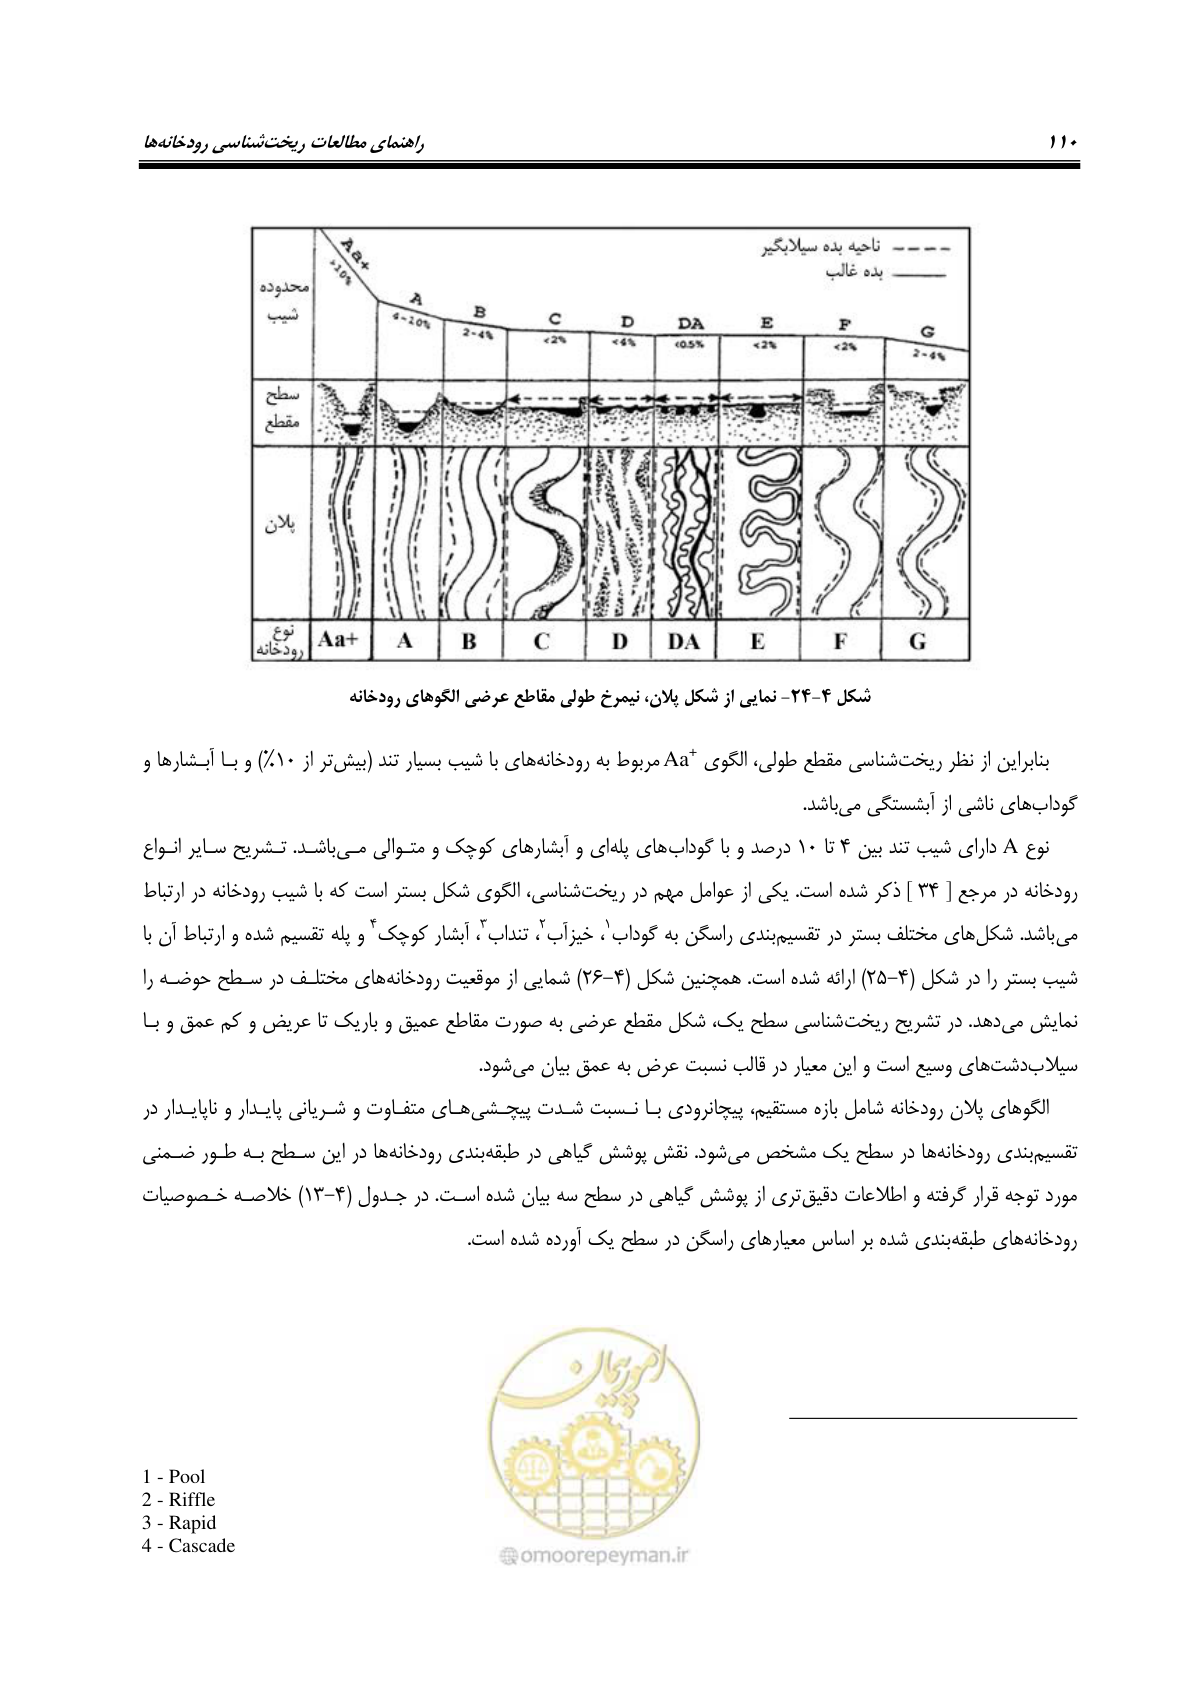 راهنمای مطالعات ریخت‌شناسی رودخانه‌ها
۱۱۰
ناحیه بده سیلابگیر
بده غالب
محدوده
شیب
Aa+
>10%
A
4-10%
B
2-4%
C
<2%
D
<4%
DA
<0.5%
E
<2%
F
<2%
G
2-4%
سطح
مقطع
پلان
نوع
رودخانه
Aa+ A B C D DA E F G
شکل ۴-۲۴- نمایی از شکل پلان، نیمرخ طولی مقاطع عرضی الگوهای رودخانه
بنابراین از نظر ریخت‌شناسی مقطع طولی، الگوی Aa⁺ مربوط به رودخانه‌های با شیب بسیار تند (بیش‌تر از ۱۰٪) و بـا آبـشارها و
گوداب‌های ناشی از آبشستگی می‌باشد.
نوع A دارای شیب تند بین ۴ تا ۱۰ درصد و با گوداب‌های پله‌ای و آبشارهای کوچک و متـوالی مـی‌باشـد. تـشریح سـایر انـواع
رودخانه در مرجع [ ۳۴ ] ذکر شده است. یکی از عوامل مهم در ریخت‌شناسی، الگوی شکل بستر است که با شیب رودخانه در ارتباط
می‌باشد. شکل‌های مختلف بستر در تقسیم‌بندی راسگن به گوداب۱، خیزآب۲، تنداب۳، آبشار کوچک۴ و پله تقسیم شده و ارتباط آن با
شیب بستر را در شکل (۴-۲۵) ارائه شده است. همچنین شکل (۴-۲۶) شمایی از موقعیت رودخانه‌های مختلـف در سـطح حوضـه را
نمایش می‌دهد. در تشریح ریخت‌شناسی سطح یک، شکل مقطع عرضی به صورت مقاطع عمیق و باریک تا عریض و کم عمق و بـا
سیلاب‌دشت‌های وسیع است و این معیار در قالب نسبت عرض به عمق بیان می‌شود.
الگوهای پلان رودخانه شامل بازه مستقیم، پیچانرودی بـا نـسبت شـدت پیچـشی‌هـای متفـاوت و شـریانی پایـدار و ناپایـدار در
تقسیم‌بندی رودخانه‌ها در سطح یک مشخص می‌شود. نقش پوشش گیاهی در طبقه‌بندی رودخانه‌ها در این سـطح بـه طـور ضـمنی
مورد توجه قرار گرفته و اطلاعات دقیق‌تری از پوشش گیاهی در سطح سه بیان شده اسـت. در جـدول (۴-۱۳) خلاصـه خـصوصیات
رودخانه‌های طبقه‌بندی شده بر اساس معیارهای راسگن در سطح یک آورده شده است.
امور پیمان
1 - Pool
2 - Riffle
3 - Rapid
4 - Cascade
@omoorepeyman.ir